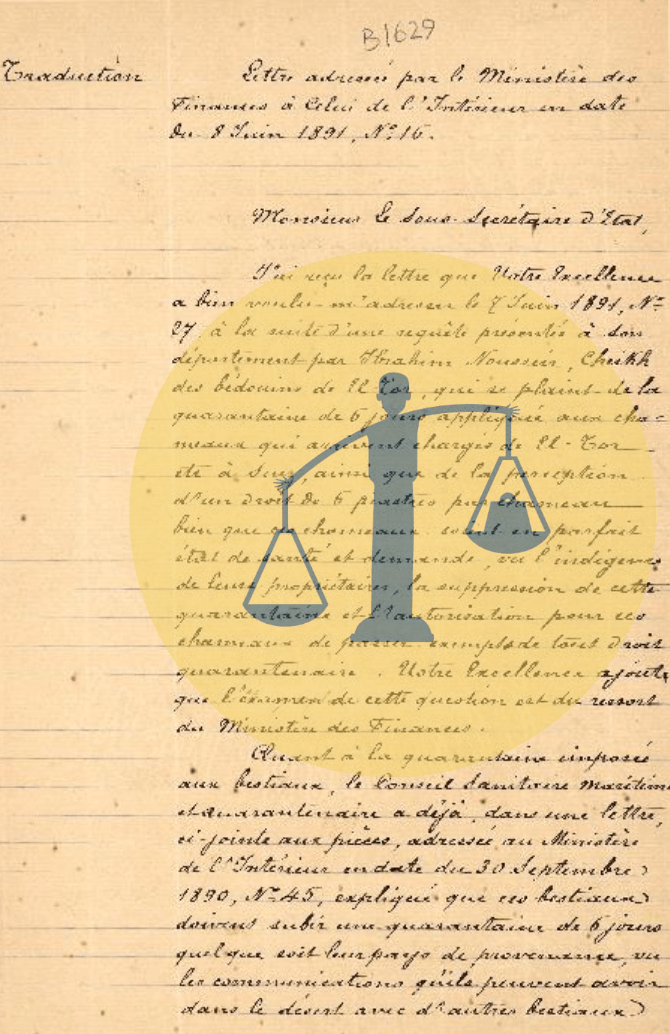 B1629
Traduction
Lettre adressée par le Ministère des
Finances à Celui de l'Intérieur en date
du 8 Juin 1891, Nº 16.
Monsieur le Sous-Secrétaire d'Etat,
J'ai reçu la lettre que Votre Excellence
a bien voulu m'adresser le 7 Juin 1891, Nº
27, à la suite d'une requête présentée à son
département par Ibrahim Nousseir, Cheikh
des bédouins de El Tor, qui se plaint de la
quarantaine de 6 jours appliquée aux cha=
meaux qui arrivent chargés de El-Tor
et à Suez, ainsi que de la perception
d'un droit de 6 piastres par chameau
bien que ces chameaux soient en parfait
état de santé et demande, vu l'indigence
de leurs propriétaires, la suppression de cette
quarantaine et l'autorisation pour ces
chameaux de passer exempts de tout droit
quarantenaire. Votre Excellence ajoute
que l'examen de cette question est du ressort
du Ministère des Finances.
Quant à la quarantaine imposée
aux bestiaux, le Conseil Sanitaire Maritime
et quarantenaire a déjà, dans une lettre,
ci-jointe aux pièces, adressée au Ministère
de l'Intérieur en date du 30 Septembre
1890, Nº 45, expliqué que ces bestiaux
doivent subir une quarantaine de 6 jours
quelque soit leur pays de provenance, vu
les communications qu'ils peuvent avoir
dans le désert avec d'autres bestiaux